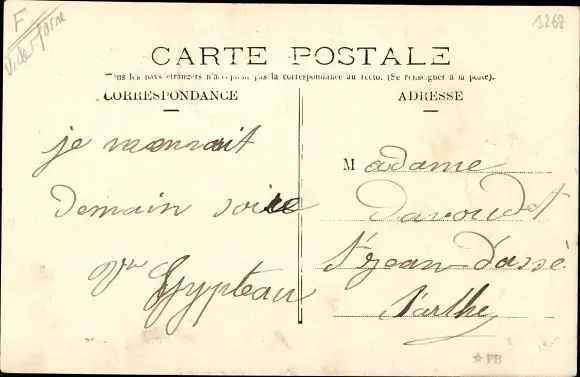 F
1268
CARTE POSTALE
Tous les pays étrangers n'acceptent pas la correspondance au recto. (Se renseigner à la poste).
CORRESPONDANCE
ADRESSE
je
demain soire
Madame
Davoudet
St Jean-d'assé
Sarthe
PB